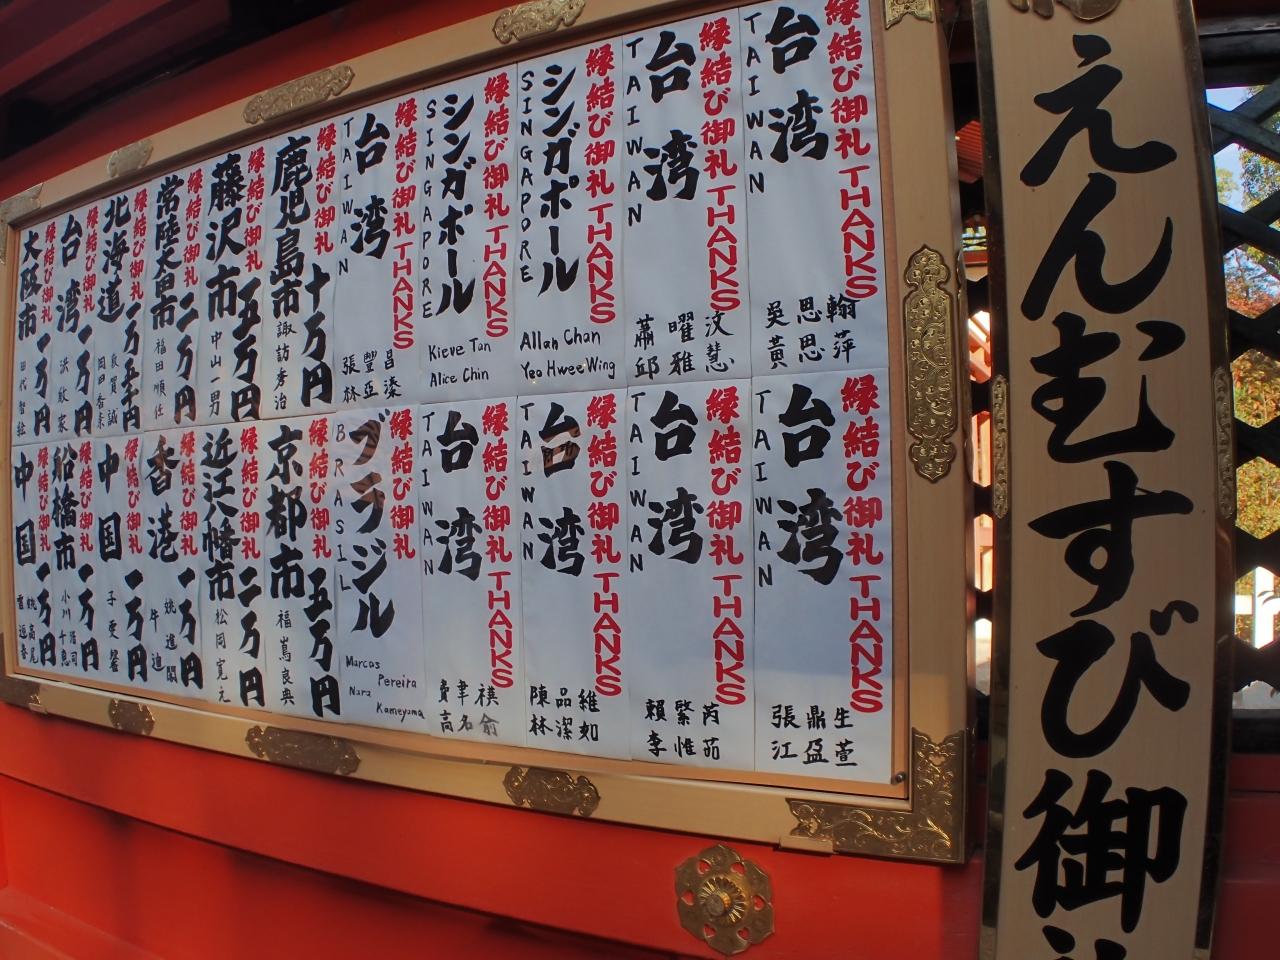 えんむすび御
縁結び御礼 THANKS
台湾
TAIWAN
吳思翰
黃思萍
縁結び御礼 THANKS
台湾
TAIWAN
蕭曜汶
邱雅慧
縁結び御礼 THANKS
シンガポール
SINGAPORE
Allan Chan
Yeo Hwee Wing
縁結び御礼 THANKS
シンガポール
SINGAPORE
Kieve Tan
Alice Chin
縁結び御礼 THANKS
台湾
TAIWAN
張豐昌
林亞溱
縁結び御礼
鹿児島市 十万円
諏訪秀治
縁結び御礼
藤沢市 五万円
中山一男
縁結び御礼
常陸太田市 二万円
福田順任
縁結び御礼
北海道 一万五千円
縁結び御礼
台湾 一万円
縁結び御礼
大阪市 一万円
縁結び御礼 THANKS
台湾
TAIWAN
張鼎生
江盈萱
縁結び御礼 THANKS
台湾
TAIWAN
賴繁芮
李惟茹
縁結び御礼 THANKS
台湾
TAIWAN
陳品維
林潔如
縁結び御礼 THANKS
台湾
TAIWAN
高名俞
縁結び御礼
ブラジル
BRASIL
Marcos Pereira
Nara Kameyama
縁結び御礼
京都市 五万円
福嶌良典
縁結び御礼
近江八幡市 二万円
松岡寛元
縁結び御礼
香港 一万円
縁結び御礼
中国 一万円
縁結び御礼
船橋市 一万円
縁結び御礼
中国 一万円